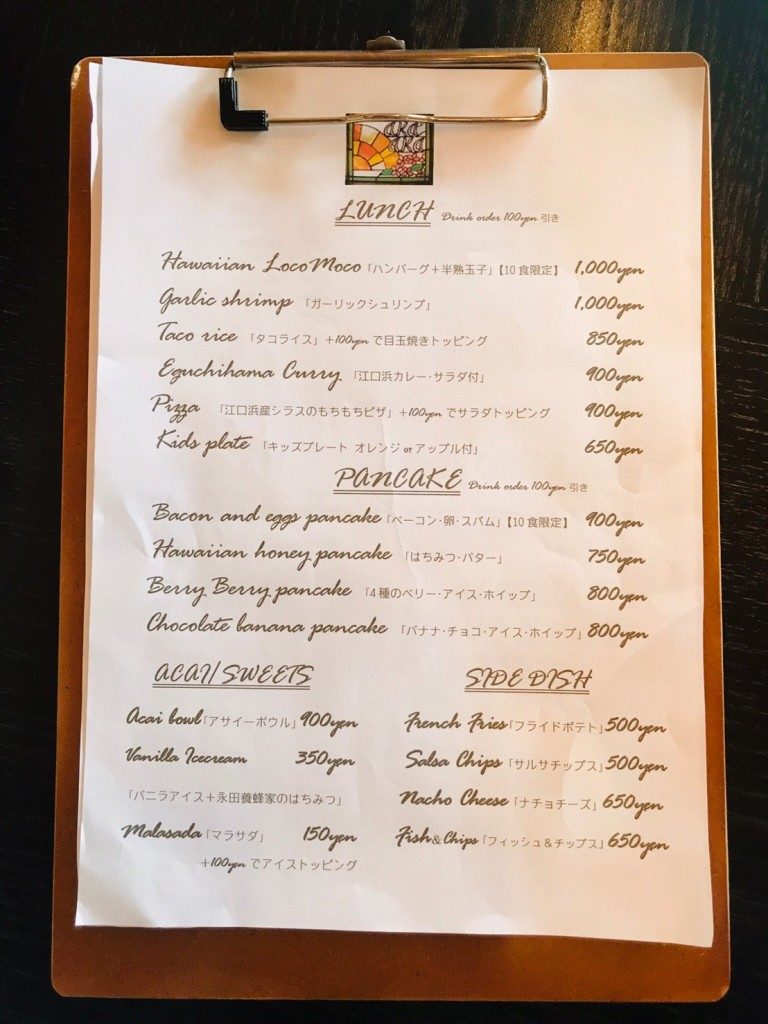 AKA
AKA
LUNCH Drink order 100yen 引き
Hawaiian LocoMoco「ハンバーグ+半熟玉子」【10食限定】 1,000yen
Garlic shrimp 「ガーリックシュリンプ」 1,000yen
Taco rice 「タコライス」+100yen で目玉焼きトッピング 850yen
Eguchihama Curry 「江口浜カレー・サラダ付」 900yen
Pizza 「江口浜産シラスのもちもちピザ」+100yen でサラダトッピング 900yen
Kids plate 「キッズプレート オレンジ or アップル付」 650yen
PANCAKE Drink order 100yen 引き
Bacon and eggs pancake「ベーコン・卵・スパム」【10食限定】 900yen
Hawaiian honey pancake 「はちみつ・バター」 750yen
Berry Berry pancake 「4種のベリー・アイス・ホイップ」 800yen
Chocolate banana pancake 「バナナ・チョコ・アイス・ホイップ」 800yen
ACAI/SWEETS
Acai bowl「アサイーボウル」900yen
Vanilla Icecream 350yen
「バニラアイス+永田養蜂家のはちみつ」
Malasada「マラサダ」 150yen
+100yen でアイストッピング
SIDE DISH
French Fries「フライドポテト」500yen
Salsa Chips「サルサチップス」500yen
Nacho Cheese「ナチョチーズ」650yen
Fish&Chips「フィッシュ&チップス」650yen